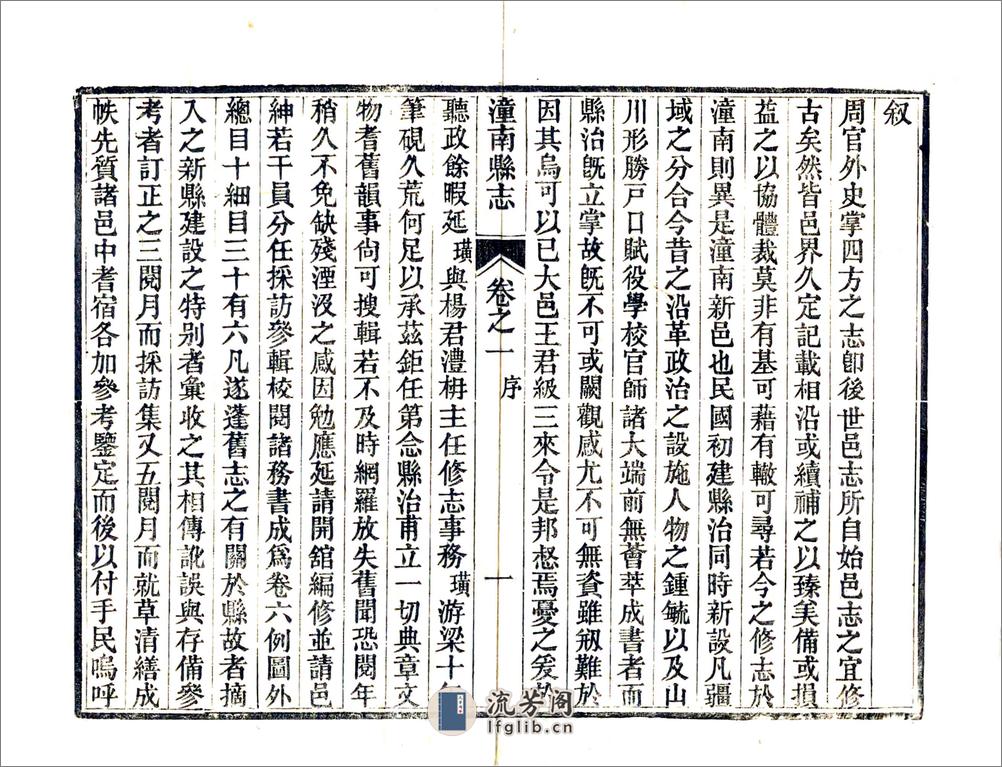 叙
周官外史掌四方之志卽後世邑志所自始邑志之宜修
古矣然皆邑界久定記載相沿或續補之以臻美備或損
益之以協體裁莫非有基可藉有轍可尋若今之修志於
潼南則異是潼南新邑也民國初建縣治同時新設凡疆
域之分合今昔之沿革政治之設施人物之鍾毓以及山
川形勝戸口賦役學校官師諸大端前無薈萃成書者而
縣治旣立掌故旣不可或闕觀感尤不可無資雖剏難於
因其烏可以已大邑王君級三來令是邦惄焉憂之爰於
潼南縣志 卷之一 序 一
聽政餘暇延璜與楊君澧枬主任修志事務璜游梁十年
筆硯久荒何足以承茲鉅任第念縣治甫立一切典章文
物耆舊韻事尙可搜輯若不及時網羅放失舊聞恐閱年
稍久不免缺殘湮沒之感因勉應延請開舘編修並請邑
紳若干員分任採訪參輯校閱諸務書成爲卷六例圖外
總目十細目三十有六凡遂蓬舊志之有關於縣故者摘
入之新縣建設之特别者彙收之其相傳訛誤與存備參
考者訂正之三閱月而採訪集又五閱月而就草清繕成
帙先質諸邑中耆宿各加參考鑒定而後以付手民嗚呼
流芳阁
lfglib.cn